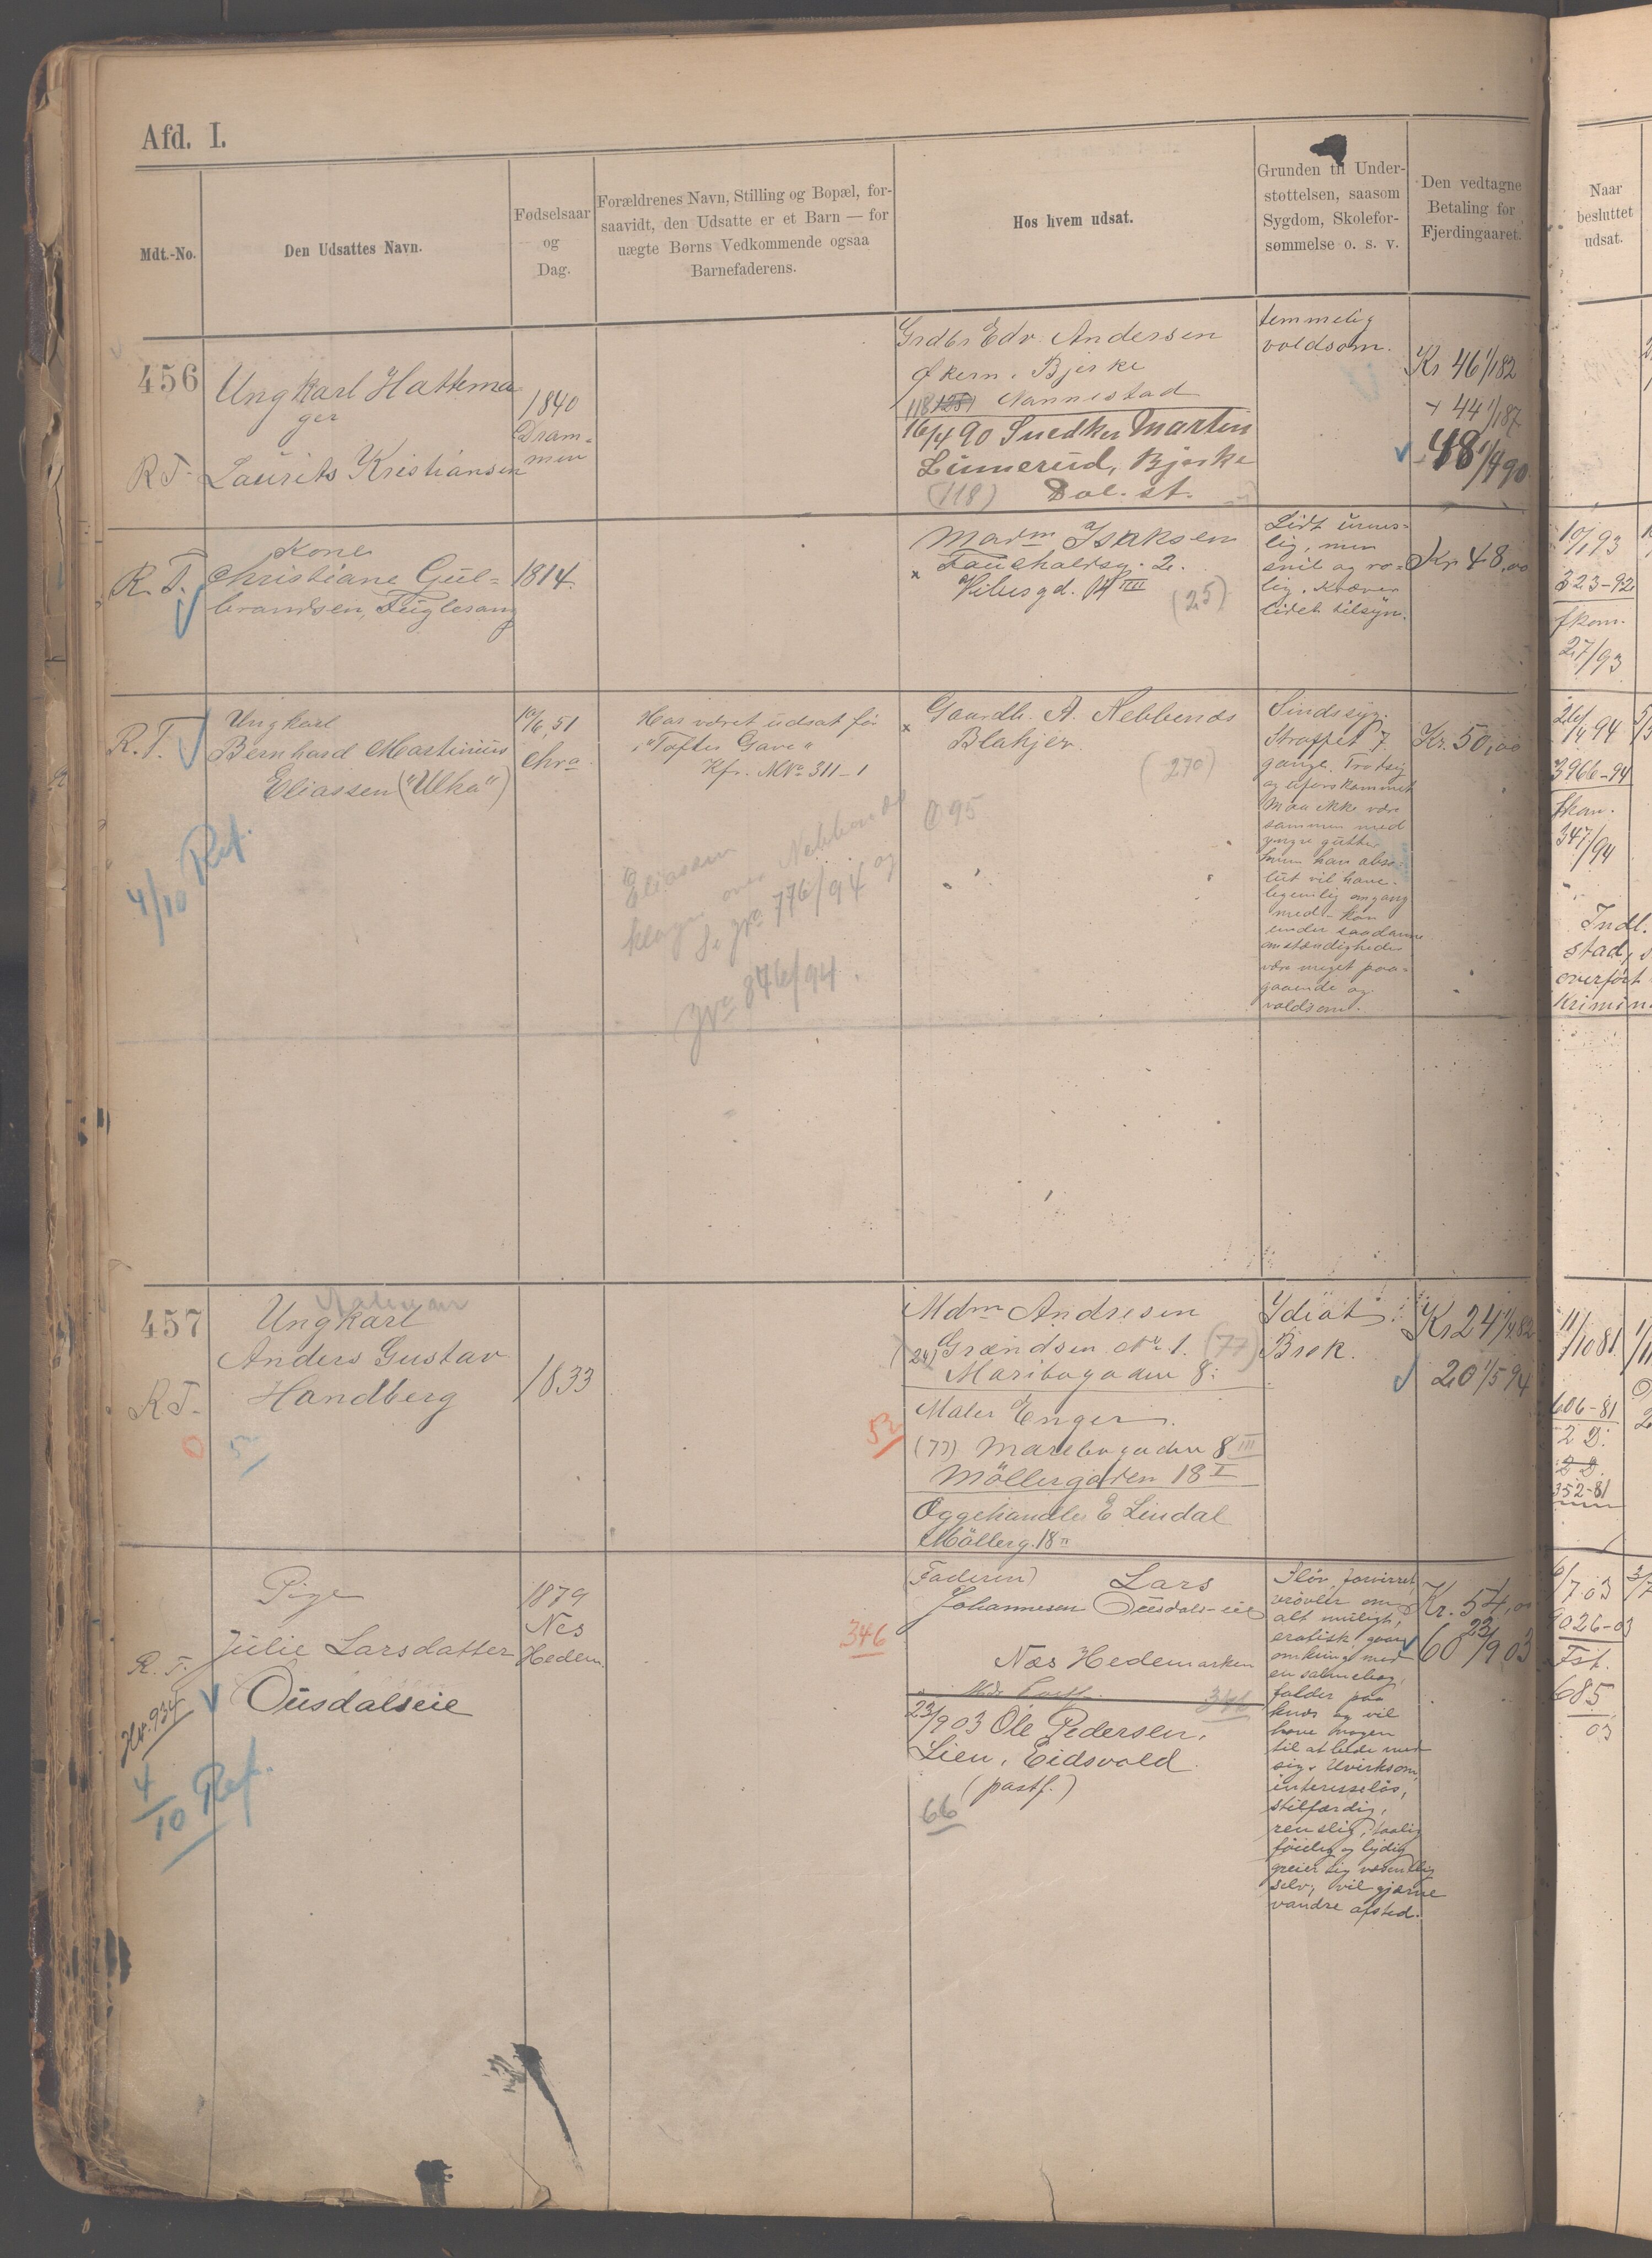 Afd. I.
Mdt.-No.
Den Udsattes Navn.
Fødselsaar
og
Dag.
Forældrenes Navn, Stilling og Bopæl, for-
saavidt, den Udsatte er et Barn — for
uægte Børns Vedkommende ogsaa
Barnefaderens.
Hos hvem udsat.
Grunden til Under-
støttelsen, saasom
Sygdom, Skolefor-
sømmelse o. s. v.
Den vedtagne
Betaling for
Fjerdingaaret.
Naar
besluttet
udsat.
456
R T.
Ungkarl Hattema
ger
Laurits Kristiansen
1840
Dram=
men
Grdbr Edv. Andersen
Økern. Bjerke
118 Nannestad
16/4 90 Snedker Martin
Linnerud, Bjerke
(118) Dal. st.
temmelig
voldsom.
Kr 46 1/1 82
+ 44 1/1 87
48 1/4 90
R. T.
Kone
Christiane Gul=
brandsen, Fuglesang
1814.
Madm Isaksen
x Fauchaldsg. 2.
Vibesgd. 14 III (25)
Lidt urens=
lig, men
snil og ro=
lig. Kræver
lidet tilsyn.
Kr 48,00
10/1 93
323-92
fkom.
27/93
R. T.
Ungkarl
Bernhard Martinius
Eliassen ("Ulka")
4/10 Ref.
10/6 51
Chra.
Har været udsat før
i "Toftes Gave"
Kfr. MNo 311-1
Eliassen
klager over Nebbenes og
J. No 776/94 og
JNo 846/94.
x Gaardb. A. Nebbenes
Blakjer.
(270)
O 95
Sindssyg.
Straffet 7
gange. Trodsig
og uforskammet
Maa ikke være
sammen med
yngre gutter,
hvem han abso=
lut vil have
legemlig omgang
med - kan
under saadanne
omstændigheder
være meget paa=
gaaende og
voldsom.
Kr. 50,00
3966-94
fkom.
347/94
Indl.
stad,
overført
Krimin
457
R T.
0
52
Ungkarl
Anders Gustav
Handberg
1833
Mdm Andresen
(24) Grændsen No 1. (77)
Maribogaden 8.
52
Maler Enger.
(77) Maribogaden 8 III
Möllergaden 18 I
Æggehandler E Lindal
Möllerg. 18 II
Idiot:
Brok.
Kr 24 1/4 82
20 1/5 94
11/10 81
606-81
2 D.
2 D.
352-81
R. T.
Hv. 934
4/10 Ref.
Pige
Julie Larsdatter
Ousdalseie
1879
Nes
Hedem.
346
(Faderen) Lars
Johannesen Ousdals-eie
Næs Hedemarken
346
23/9 03 Ole Pedersen,
Lien, Eidsvold
(postf.)
66
Sløv, forvirret,
vrøvler om
alt muligt,
erotisk, gaar
omkring med
en salmebog,
falder paa
knæ og vil
have nogen
til at bede med
sig. Uvirksom,
interesseløs,
stilfærdig,
renslig, taalig
føielig og lydig
greier sig væsentlig
selv; vil gjærne
vandre afsted.
Kr. 54,00
60 23/9 03
6/7 03
9026-03
Fst.
685
03